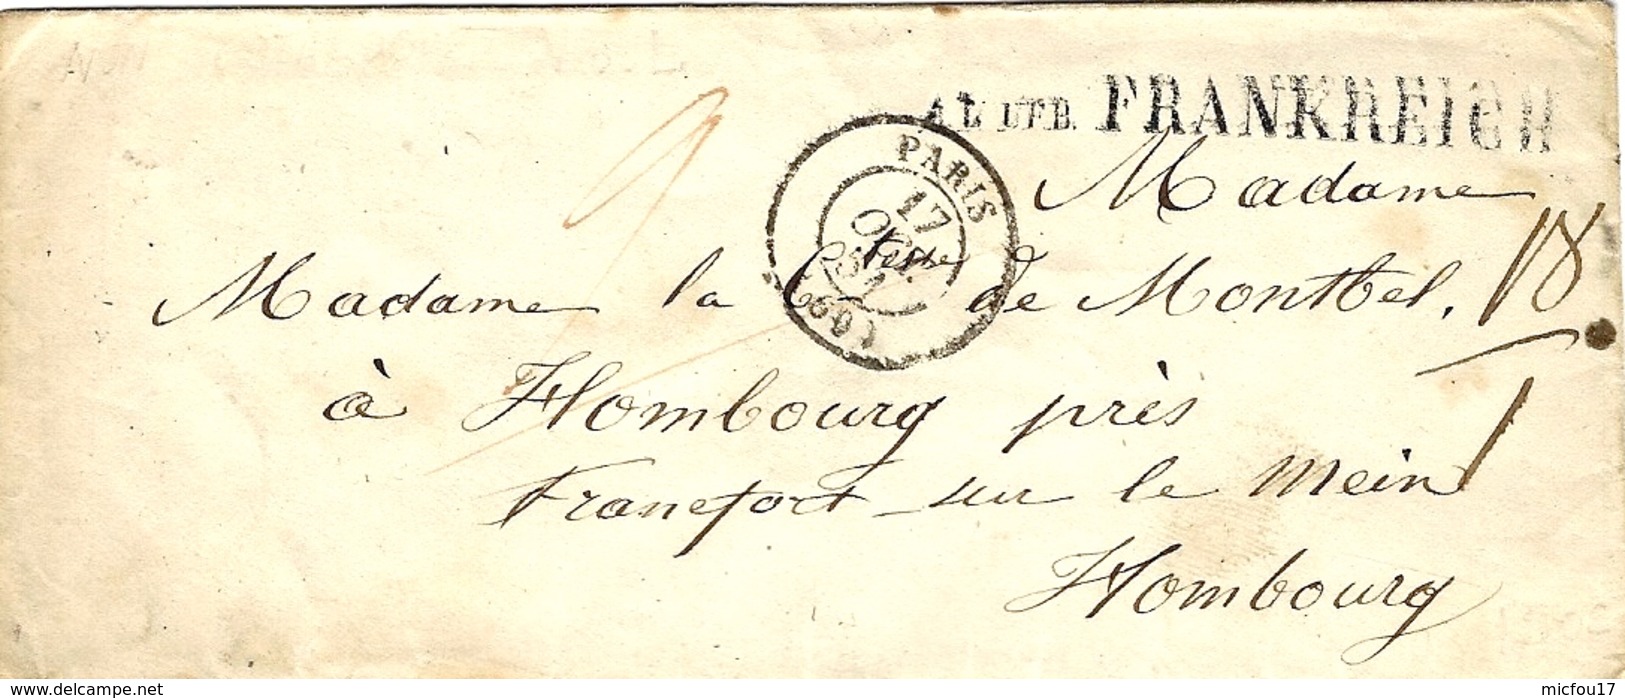 AUS FRANKREICH
PARIS
17
OCT.
(60)
Madame
Madame la Ctesse de Montbel,
à Hombourg près
Francfort sur le Mein
Hombourg
18
www.delcampe.net
micfou17